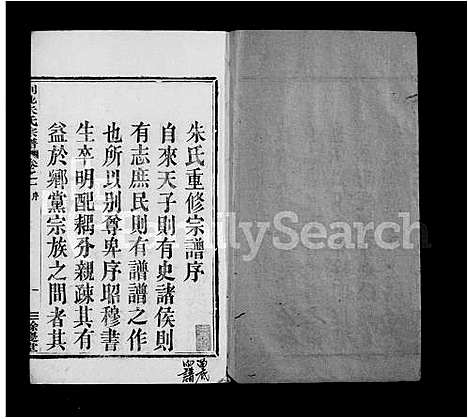 朱氏重修宗譜序
自來天子則有史諸侯則
有志庶民則有譜譜之作
也所以別尊卑序昭穆書
生卒明配耦分親疎其有
益於鄉黨宗族之間者其
朱氏宗譜
序
一
FamilySearch